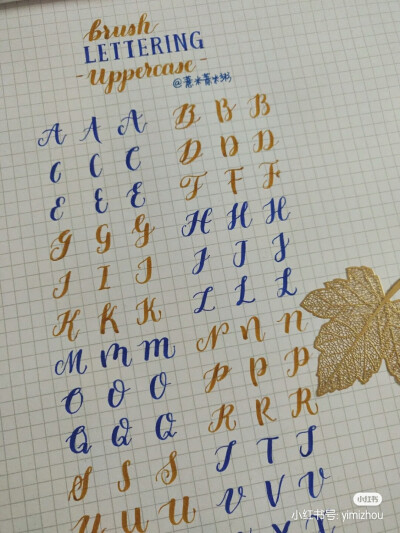 brush
LETTERING
- Uppercase -
A A A B B B
C C C D D D
E E E F F F
G G G H H H
I I I J J J
K K K L L L
M M M N N N
O O O P P P
Q Q Q R R R
S S S T T T
U U U V V V
小红书
小红书号: yimizhou